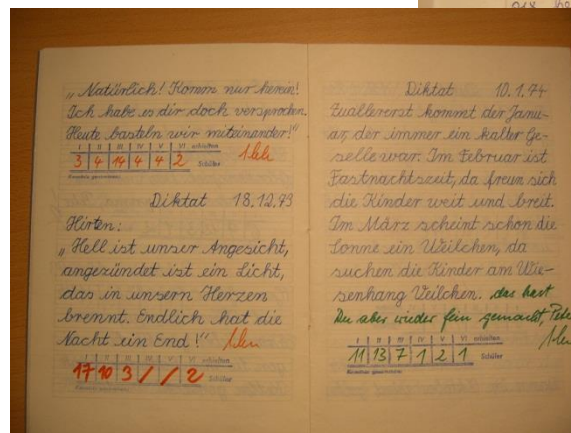 „Natürlich! Komm nur herein!
Ich habe es dir doch versprochen.
Heute basteln wir miteinander!"
I II III IV V VI erhielten
3 4 14 4 4 2 Schüler
Diktat 18.12.73
Hirten:
„Hell ist unser Angesicht,
angezündet ist ein Licht,
das in unsern Herzen
brennt. Endlich hat die
Nacht ein End!"
I II III IV V VI erhielten
17 10 3 / / 2 Schüler
Diktat 10.1.74
Zuallererst kommt der Janu-
ar, der immer ein kalter Ge-
selle war. Im Februar ist
Fastnachtszeit, da freun sich
die Kinder weit und breit.
Im März scheint schon die
Sonne ein Weilchen, da
suchen die Kinder am Wie-
senhang Veilchen. das hast
Du aber wieder fein gemacht, Pete
I II III IV V VI erhielten
11 13 7 1 2 1 Schüler